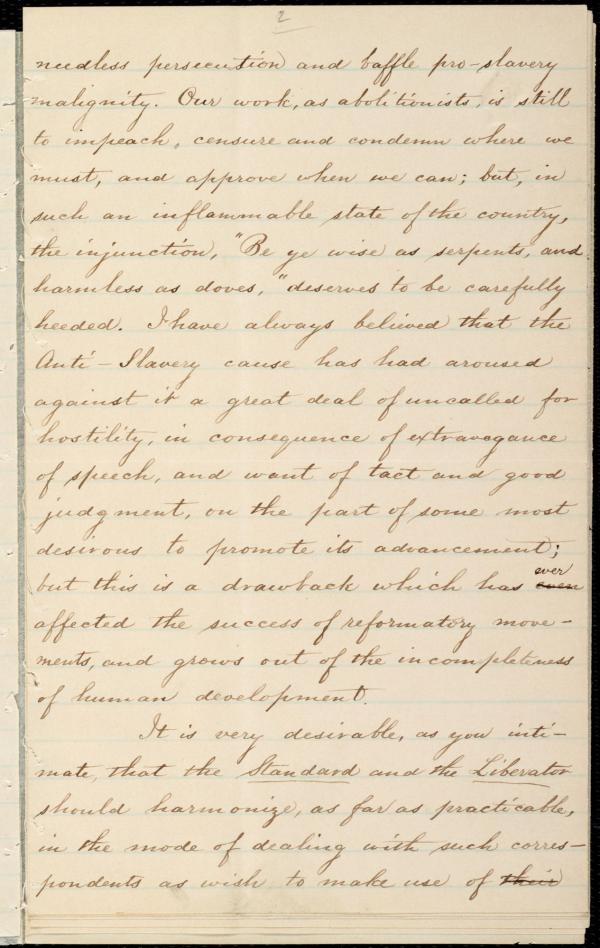 2
needless persecution and baffle pro-slavery
malignity. Our work, as abolitionists, is still
to impeach, censure and condemn where we
must, and approve when we can; but, in
such an inflammable state of the country,
the injunction, "Be ye wise as serpents, and
harmless as doves," deserves to be carefully
heeded. I have always believed that the
Anti-Slavery cause has had aroused
against it a great deal of uncalled for
hostility, in consequence of extravagance
of speech, and want of tact and good
judgment, on the part of some most
desirous to promote its advancement;
but this is a drawback which has even ever
affected the success of reformatory move-
ments, and grows out of the incompleteness
of human development.
It is very desirable, as you inti-
mate, that the Standard and the Liberator
should harmonize, as far as practicable,
in the mode of dealing with such corres-
pondents as wish to make use of their